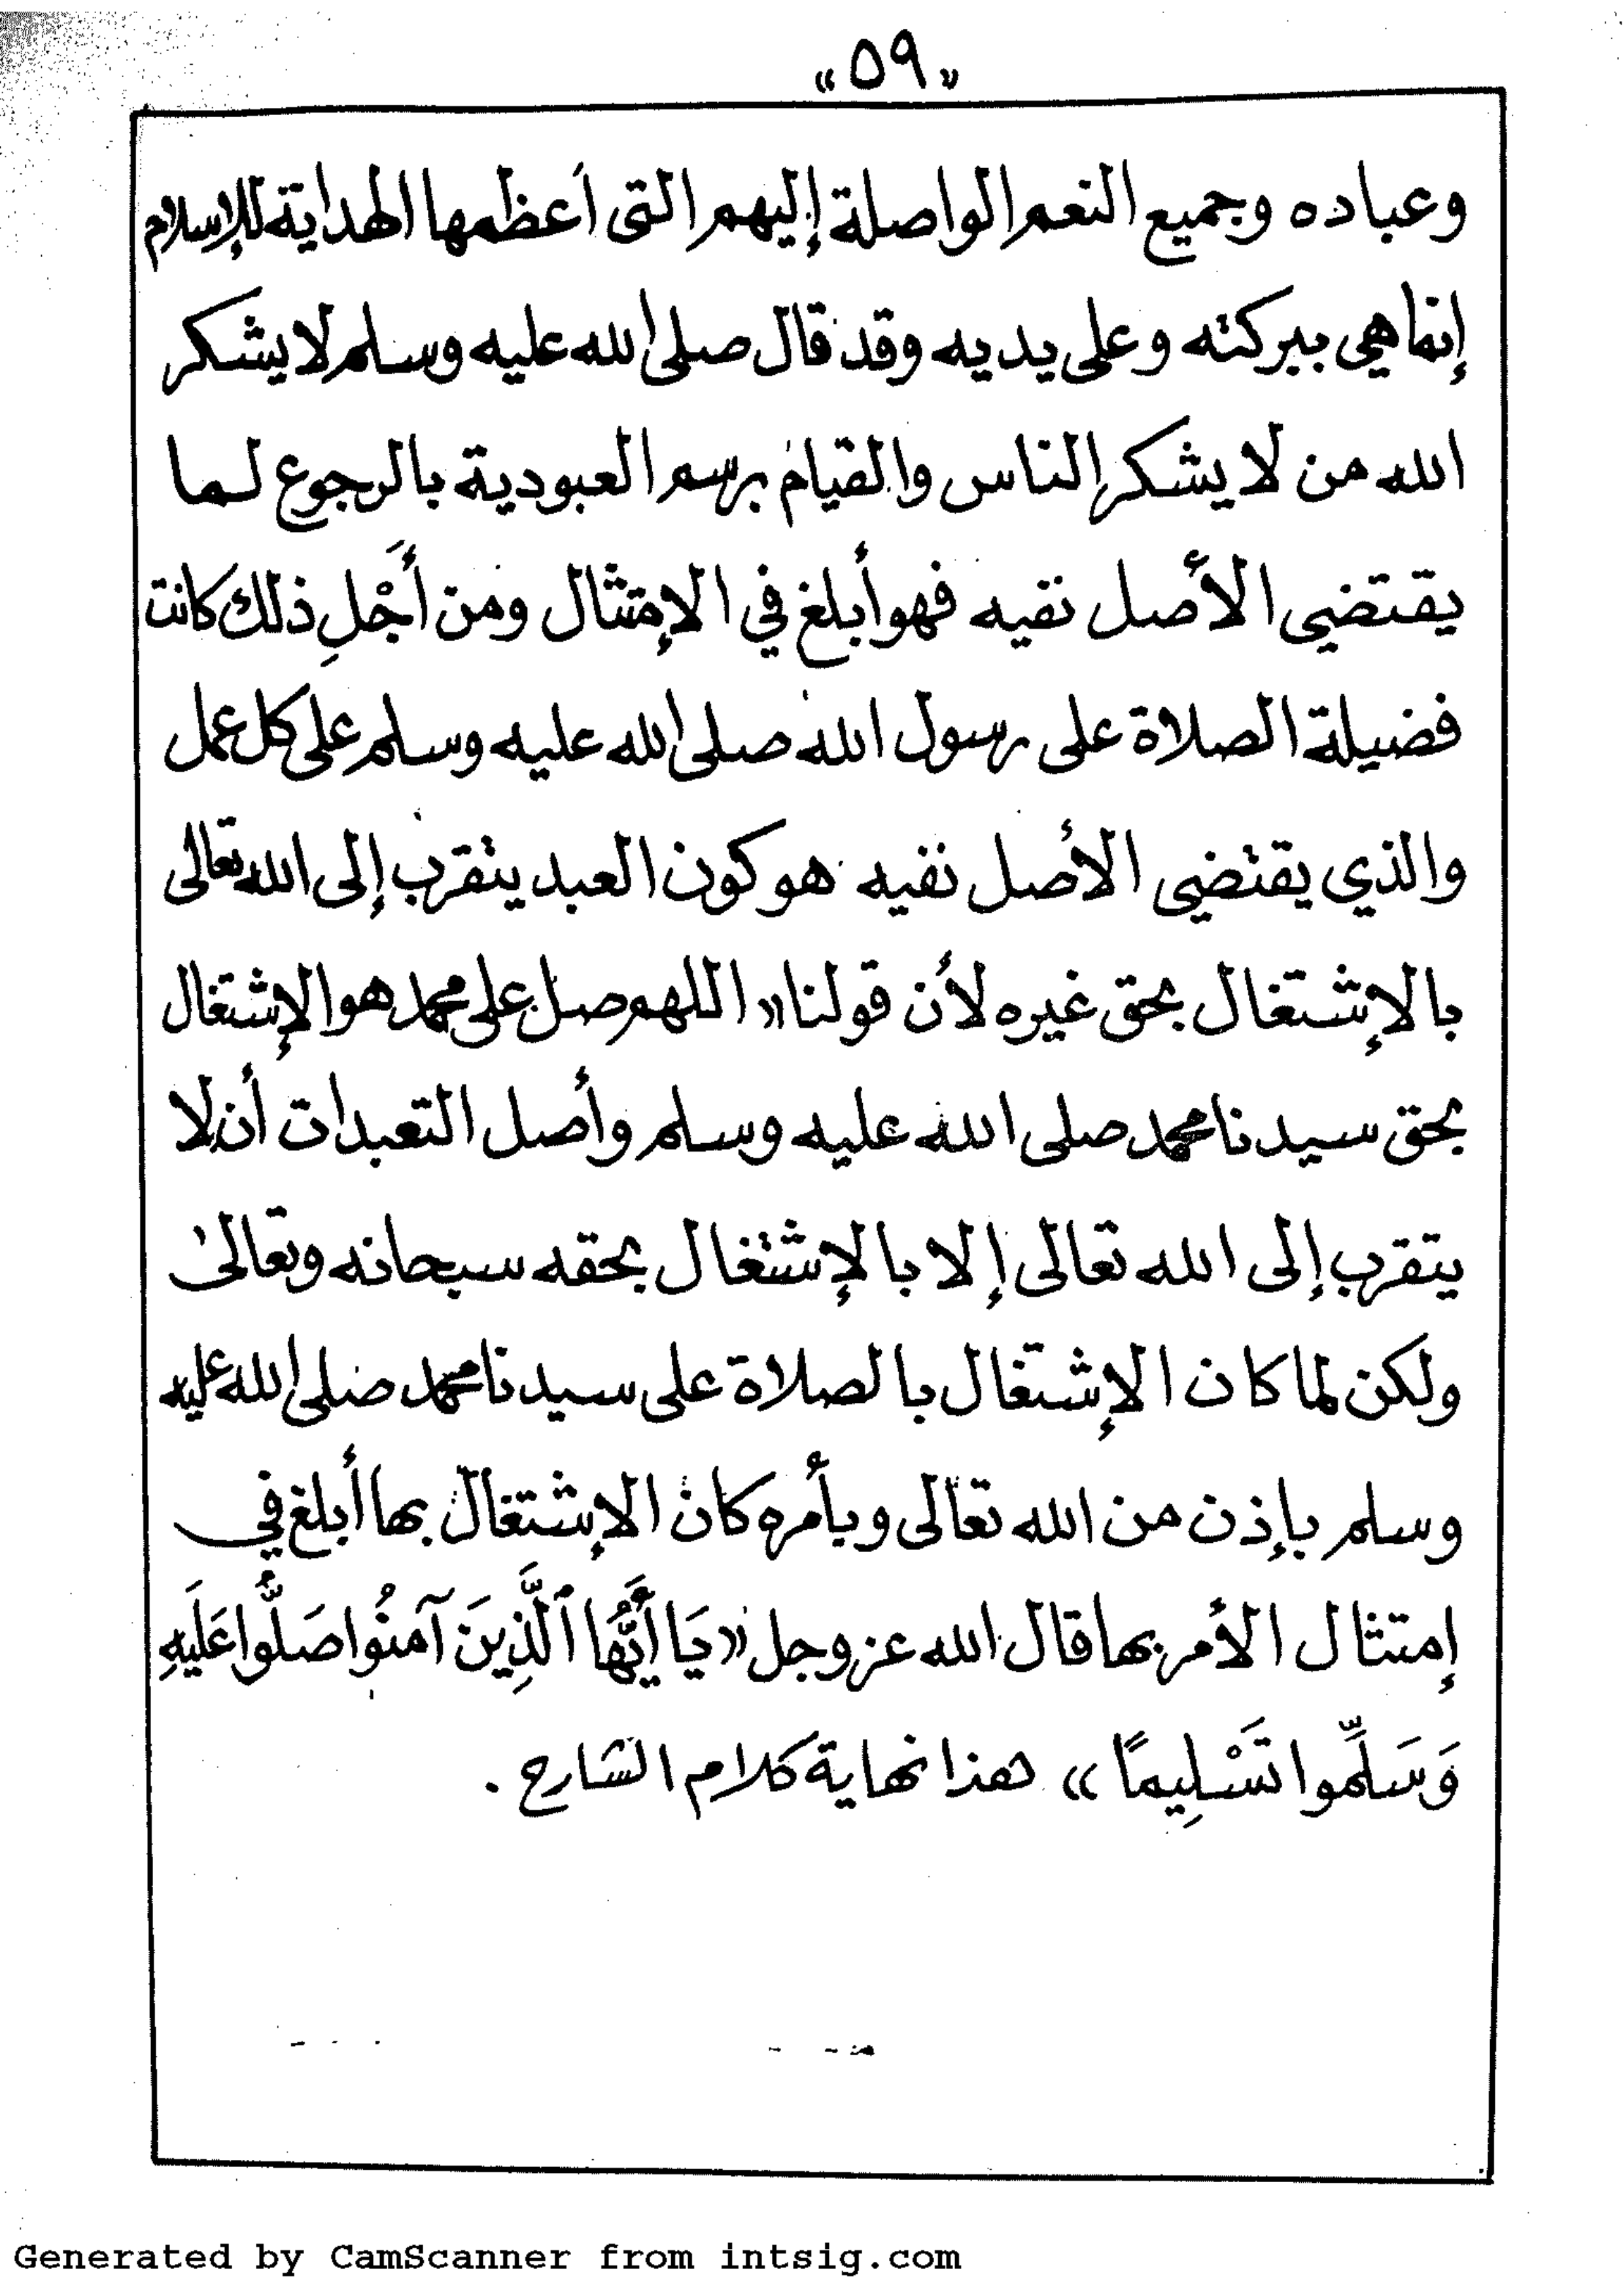 «٥٩»
وعباده وجميع النعم الواصلة إليهم التى أعظمها الهداية للإسلام
إنما هي ببركته وعلى يديه وقد قال صلى الله عليه وسلم لا يشكر
الله من لا يشكر الناس والقيام برسم العبودية بالرجوع لما
يقتضى الأصل نفيه فهو أبلغ في الإمتثال ومن أَجْلِ ذلك كانت
فضيلة الصلاة على رسول الله صلى الله عليه وسلم على كل عمل
والذي يقتضى الأصل نفيه هو كون العبد يتقرب إلى الله تعالى
بالإشتغال بحق غيره لأن قولنا «اللهم صل على محمد هو الإشتغال
بحق سيدنا محمد صلى الله عليه وسلم وأصل التعبدات أن لا
يتقرب إلى الله تعالى إلا بالإشتغال بحقه سبحانه وتعالىٰ
ولكن لما كان الإشتغال بالصلاة على سيدنا محمد صلى الله عليه
وسلم بإذن من الله تعالى وبأمره كان الإشتغال بها أبلغ في
إمتثال الأمر بها قال الله عز وجل «يَا أَيُّهَا ٱلَّذِينَ آمَنُوا صَلُّوا عَلَيهِ
وَسَلِّمُوا تَسْلِيمًا» هذا نهاية كلام الشارح .
Generated by CamScanner from intsig.com